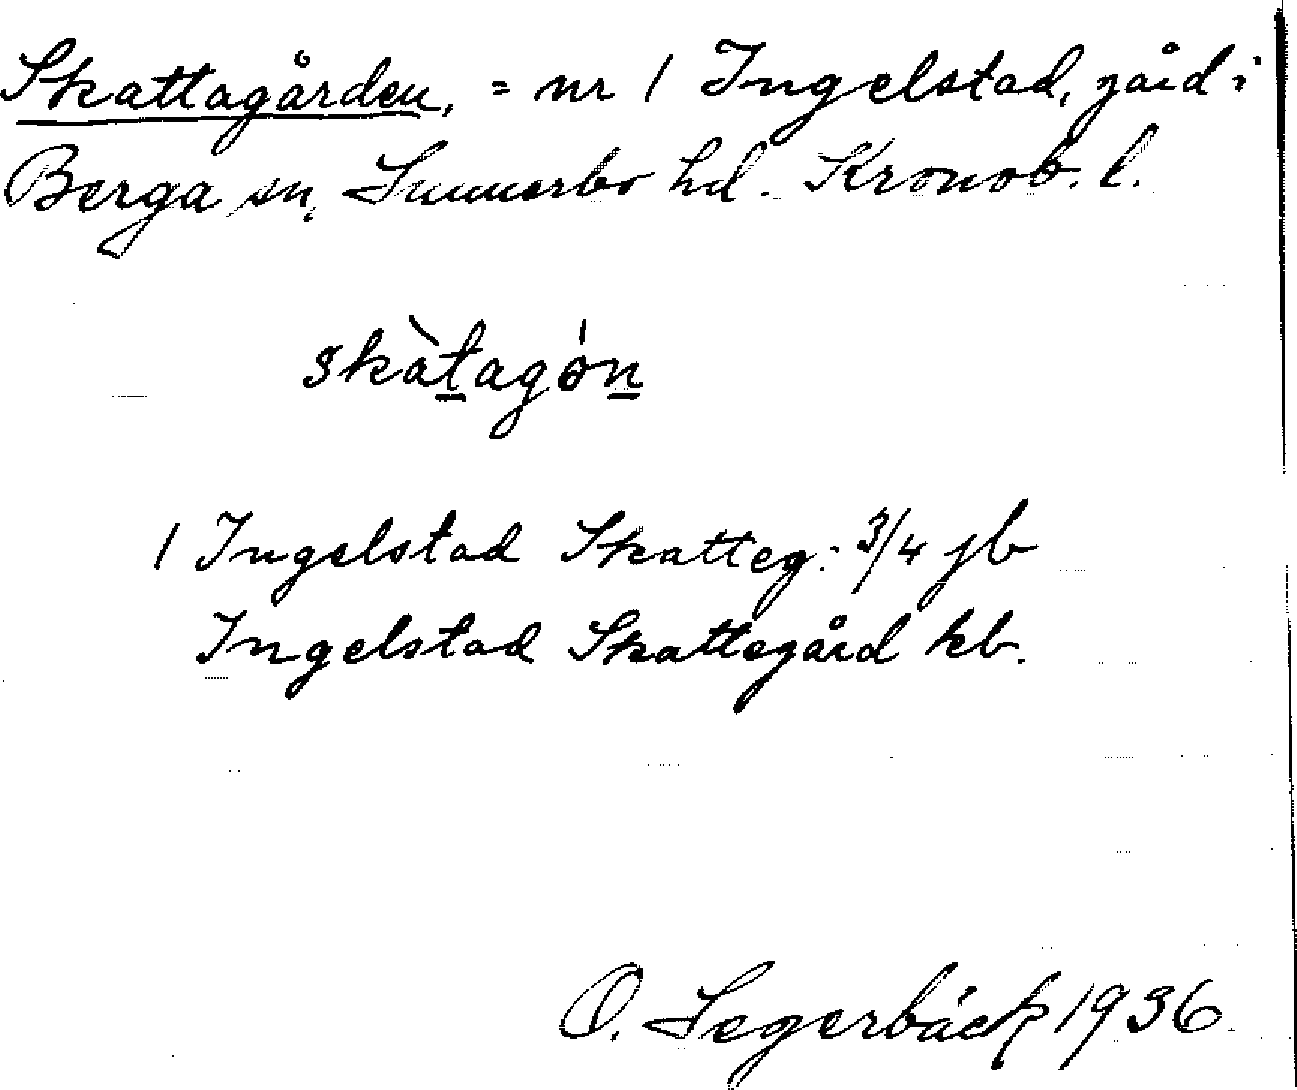 Skattagården, = nr 1 Ingelstad, gård i
Berga sn, Sunnerbo hd. Kronob. l.
skàtagón
1 Ingelstad Skatteg: 3/4 jb
Ingelstad Skattegård kb.
O. Segerbäck 1936